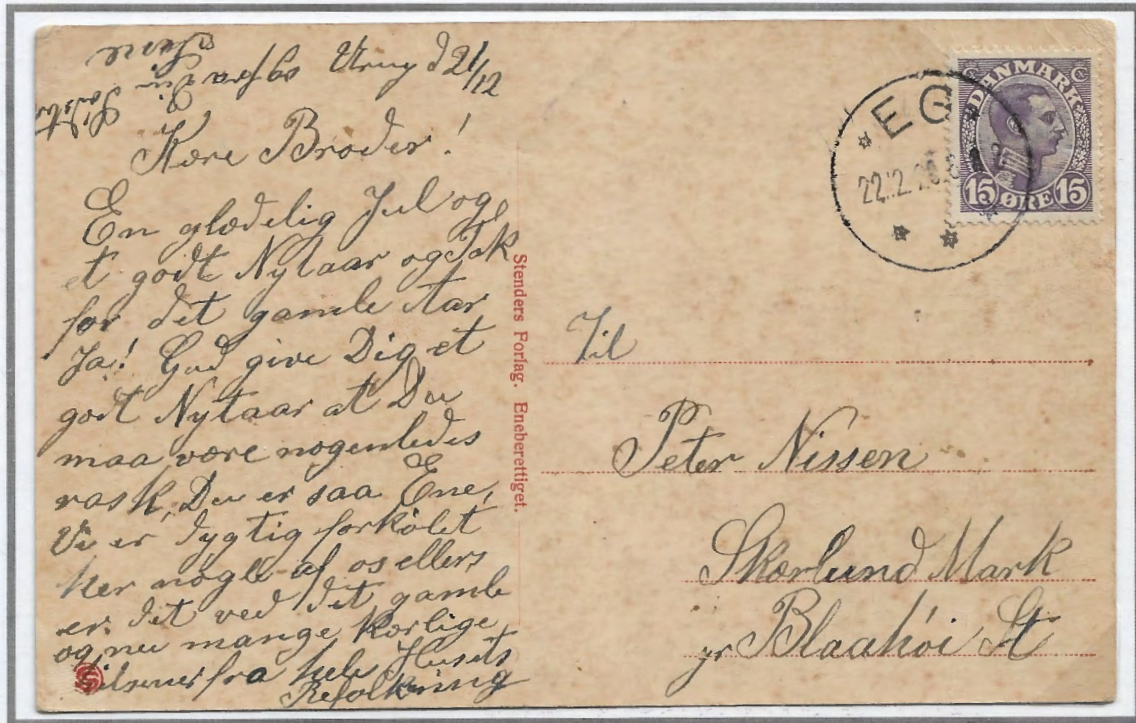 Urup d 21/12
Kære Broder!
En glædelig Jul og
et godt Nytaar og Tak
for det gamle Aar
Ja! Gud give Dig et
godt Nytaar at Du
maa være nogenledes
rask, Du er saa Ene,
Vi er dygtig forkölet
her nogle af os ellers
er det ved det gamle
og nu mange kærlige
Hilsener fra hele Husets
Befolkning
og fra
Din Søster
Sine
Stenders Forlag. Eneberettiget.
DANMARK
15 ØRE 15
EG
22.12.20
Til
Peter Nissen
Skærlund Mark
pr Blaahöi St